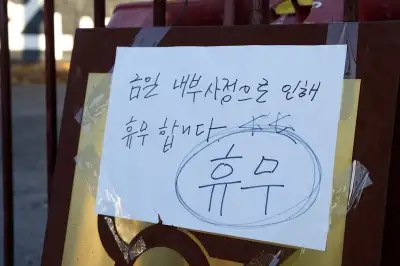 금일 내부사정으로 인해
휴무 합니다.
휴무